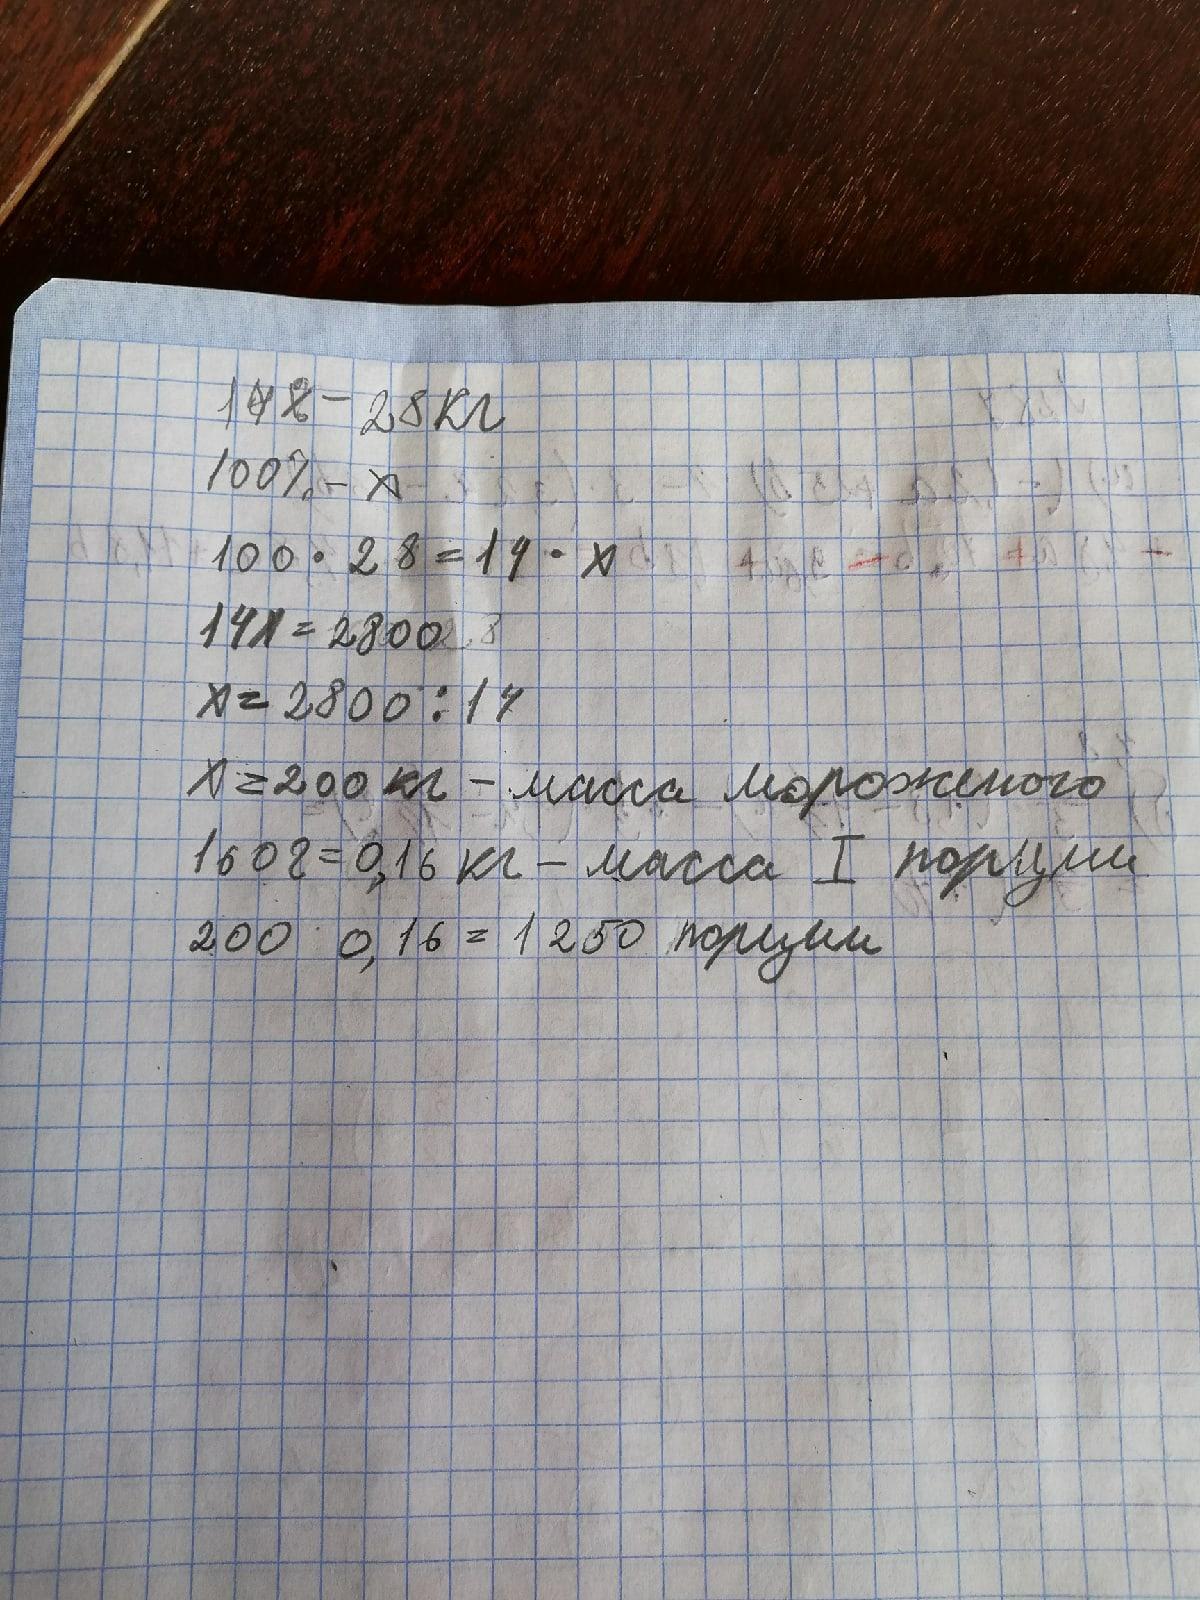 14% - 28 кг
100% - x
100 · 28 = 14 · x
14x = 2800
x = 2800 : 14
x = 200 кг - масса мороженого
160 г = 0,16 кг - масса I порции
200 0,16 = 1250 порции